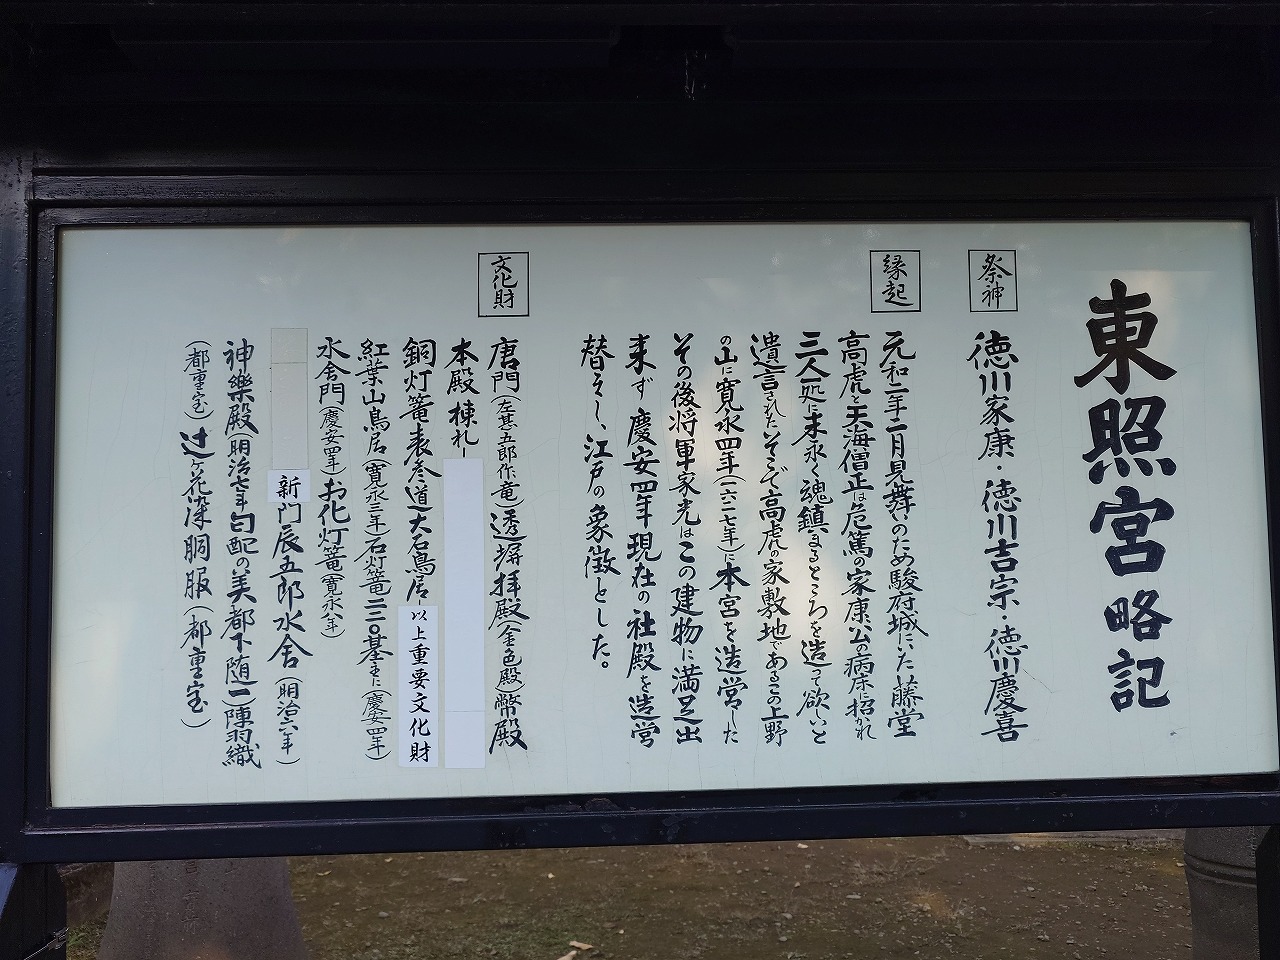 東照宮略記
祭神
徳川家康・徳川吉宗・徳川慶喜
縁起
元和二年二月見舞いのため駿府城にいた藤堂
高虎と天海僧正は危篤の家康公の病床に招かれ
三人一処に末永く魂鎮まるところを造って欲しいと
遺言されたそこで高虎の家敷地であるこの上野
の山に寛永四年(一六二七年)に本宮を造営した
その後将軍家光はこの建物に満足出
来ず慶安四年現在の社殿を造営
替えし、江戸の象徴とした。
文化財
唐門(左甚五郎作竜)透塀拝殿(金色殿)幣殿
本殿棟札一
銅灯篭表参道大石鳥居以上重要文化財
紅葉山鳥居(寛永三年)石灯篭二二〇基(慶安四年)
水舎門(慶安四年)お化灯篭(寛永八年)
新門辰五郎水舎(明治六年)
神樂殿(明治七年)勾配の美都下随一陳羽織
(都重宝)辻ヶ花染胴服(都重宝)